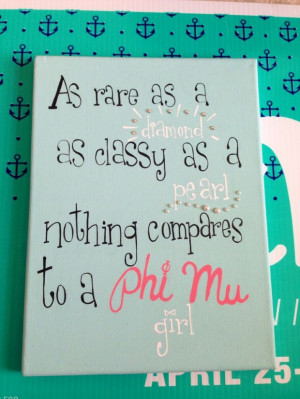 As rare as a
diamond
as classy as a
pearl
nothing compares
to a phi mu
girl
APRIL 25-